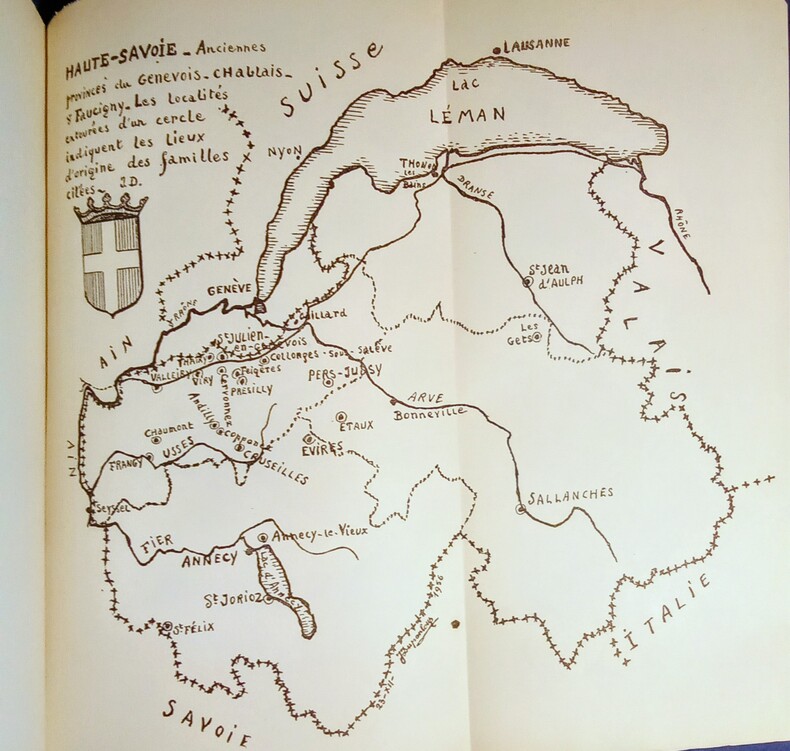 HAUTE-SAVOIE - Anciennes
provinces du Genevois - Chablais -
& Faucigny. Les localités
entourées d'un cercle
indiquent les lieux
d'origine des familles
citées - J.D.
SUISSE
LAUSANNE
LAC
LÉMAN
NYON
THONON
les
Bains
DRANSE
RHÔNE
VALAIS
St Jean
d'AULPH
GENÈVE
RHÔNE
Gaillard
Les
Gets
AIN
St JULIEN-
en-Genevois
Collonges-Sous-Salève
THAIRY
VALLEIRY
VIRY
Feigères
PRÉSILLY
PERS-JUSSY
ARVE
Bonneville
ETAUX
EVIRES
Andilly
Chaumont
USSES
CRUSEILLES
FRANGY
AIN
Seyssel
SALLANCHES
FIER
ANNECY
Annecy-le-Vieux
St JORIOZ
St FÉLIX
ITALIE
SAVOIE
23-XII-1956